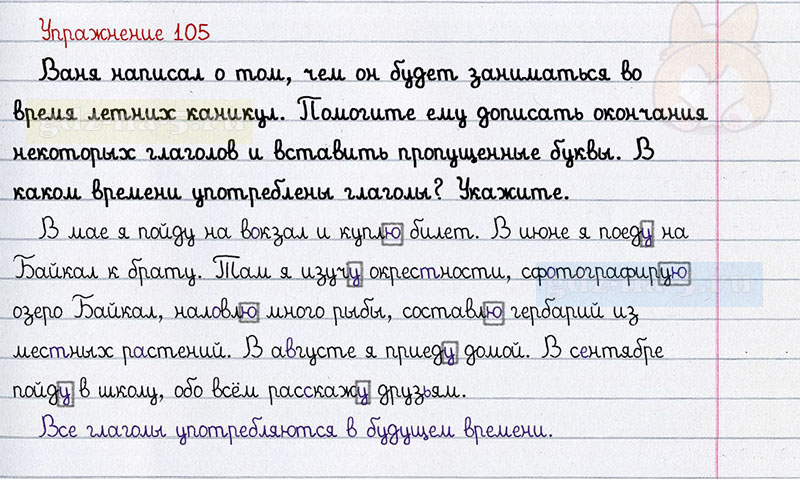 Упражнение 105
Ваня написал о том, чем он будет заниматься во
время летних каникул. Помогите ему дописать окончания
некоторых глаголов и вставить пропущенные буквы. В
каком времени употреблены глаголы? Укажите.
В мае я пойду на вокзал и куплю билет. В июне я поеду на
Байкал к брату. Там я изучу окрестности, сфотографирую
озеро Байкал, наловлю много рыбы, составлю гербарий из
местных растений. В августе я приеду домой. В сентябре
пойду в школу, обо всём расскажу друзьям.
Все глаголы употребляются в будущем времени.